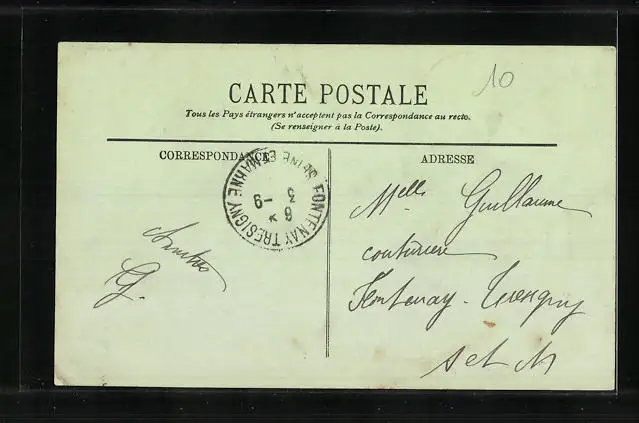 10
CARTE POSTALE
Tous les Pays étrangers n'acceptent pas la Correspondance au recto.
(Se renseigner à la Poste).
CORRESPONDANCE
ADRESSE
FONTENAY TRESIGNY SEINE ET MARNE
Melle Guillaume
couturière
Fontenay-Tresigny
S et M
G.